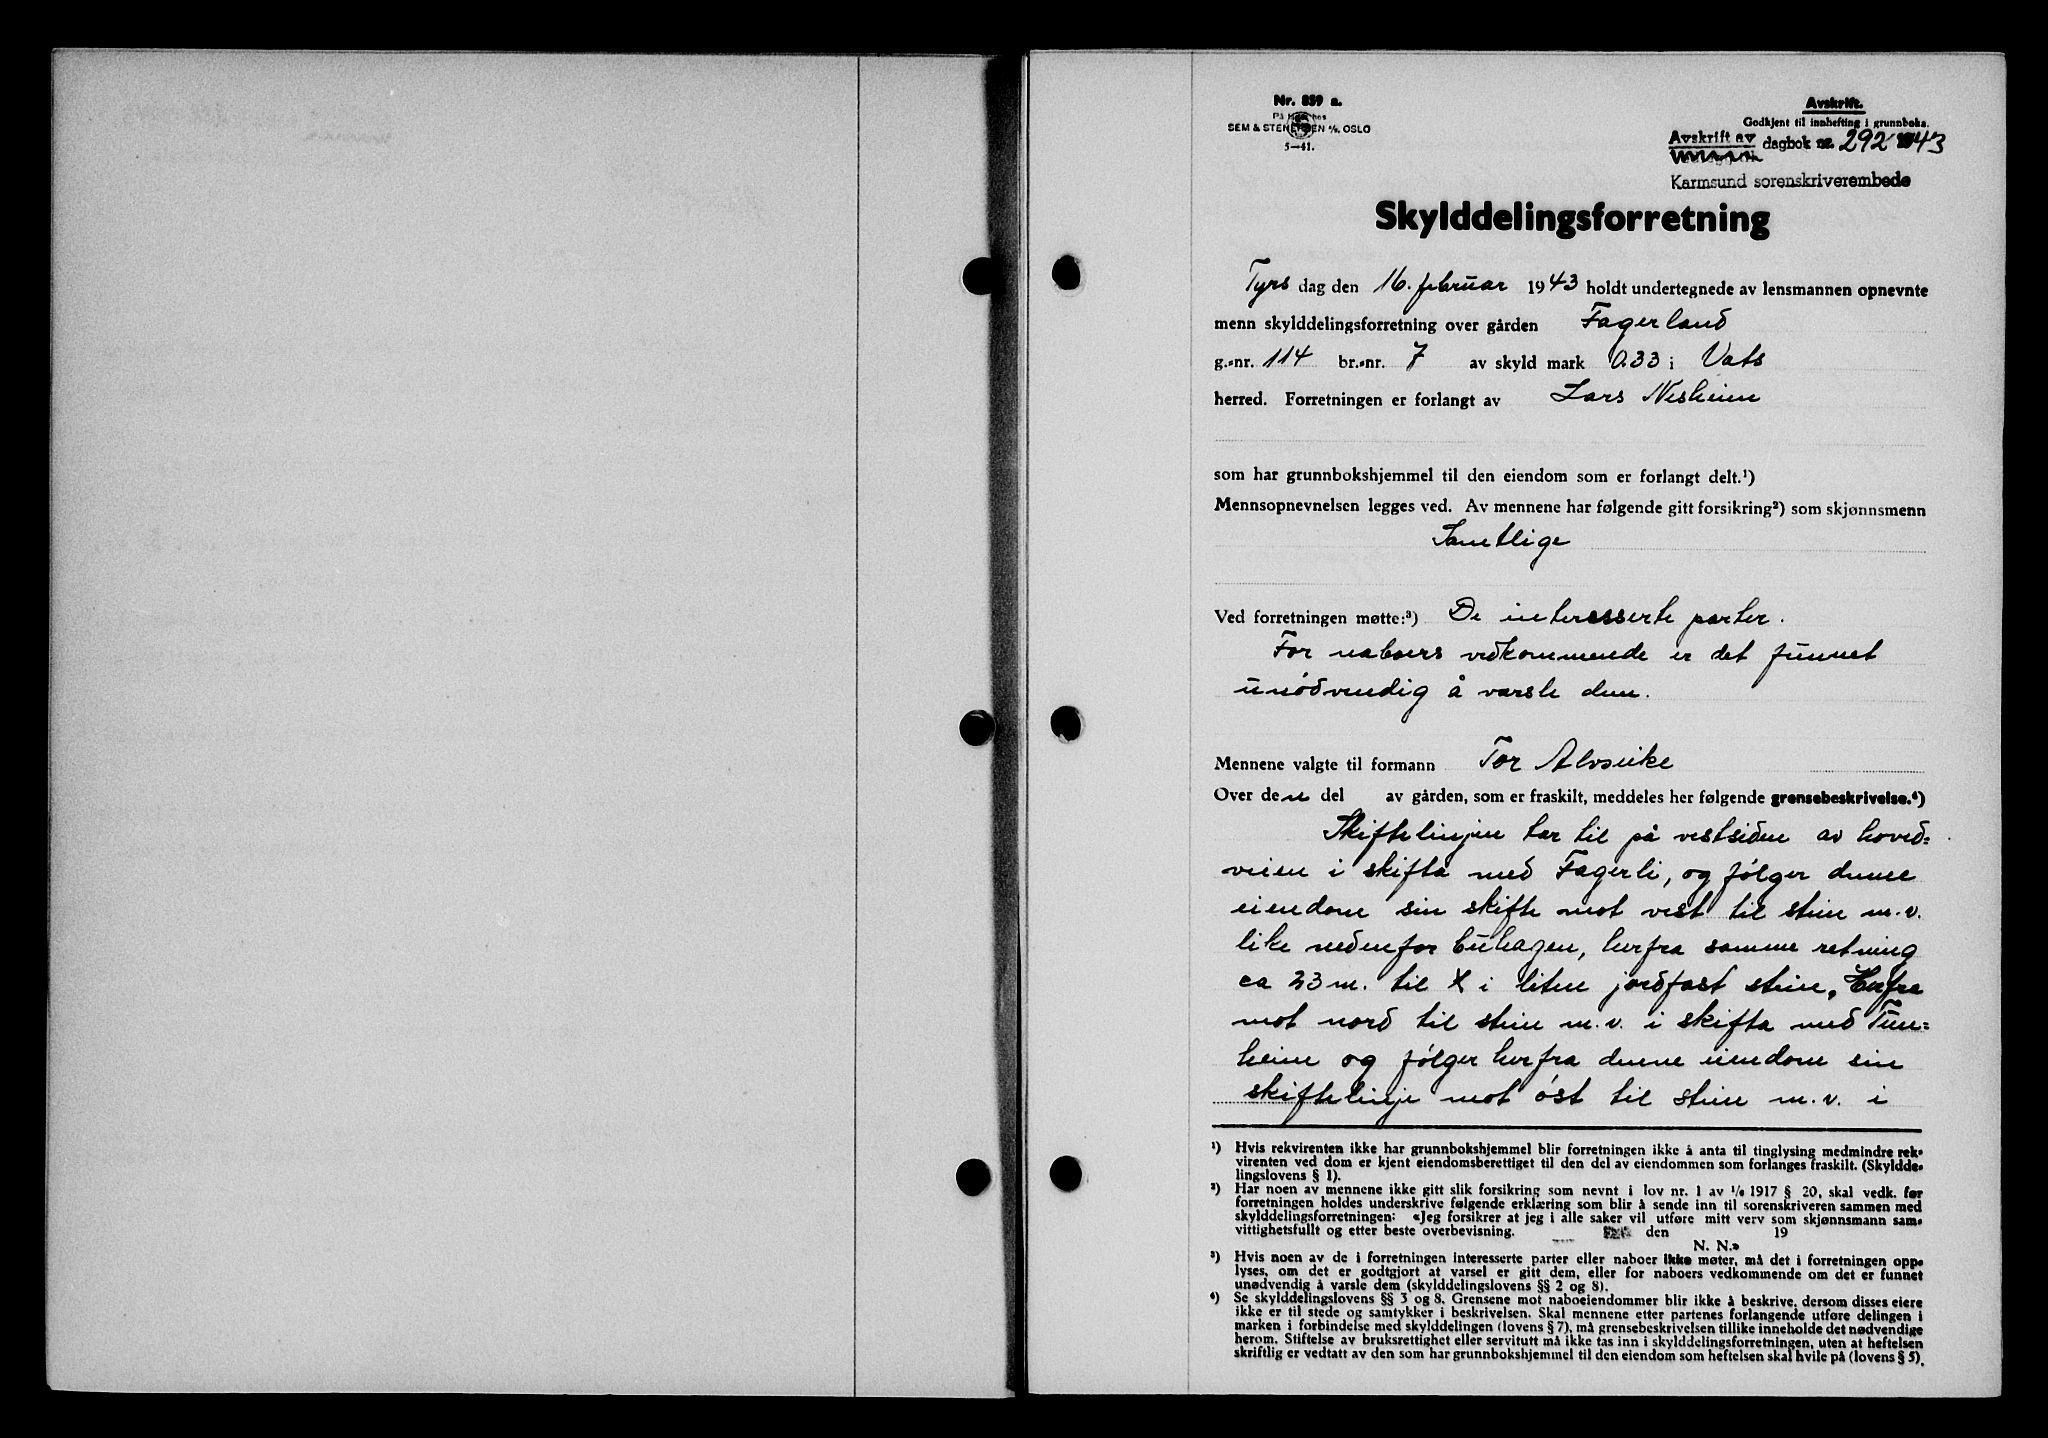 Nr. 859 a.
På lager hos
SEM & STENERSEN A/S, OSLO
5—41.
Avskrift.
Godkjent til innhefting i grunnboka.
Avskrift av dagbok nr. 292 1943
Karmsund sorenskriverembede
Skylddelingsforretning
Tyrs dag den 16. februar 1943 holdt undertegnede av lensmannen opnevnte
menn skylddelingsforretning over gården Fagerland
g.-nr. 114 br.-nr. 7 av skyld mark 0.33 i Vats
herred. Forretningen er forlangt av Lars Nesheim
som har grunnbokshjemmel til den eiendom som er forlangt delt.¹)
Mennsopnevnelsen legges ved. Av mennene har følgende gitt forsikring²) som skjønnsmenn
Samtlige
Ved forretningen møtte:³) De interesserte parter.
For naboers vedkommende er det funnet
unødvendig å varsle dem.
Mennene valgte til formann Tor Alvseike
Over den del av gården, som er fraskilt, meddeles her følgende grensebeskrivelse.⁴)
Skiftelinjen tar til på vestsiden av hoved=
veien i skifta med Fagerli, og følger denne
eiendom sin skifte mot vest til stein m.v.
like nedenfor buhagen, herfra samme retning
ca 23 m. til X i liten jordfast stein. Herfra
mot nord til stein m.v. i skifta med Tun=
heim og følger herfra denne eiendom sin
skiftelinje mot øst til stein m.v. i
¹) Hvis rekvirenten ikke har grunnbokshjemmel blir forretningen ikke å anta til tinglysing medmindre rek-
virenten ved dom er kjent eiendomsberettiget til den del av eiendommen som forlanges fraskilt. (Skyldde-
lingslovens § 1).
²) Har noen av mennene ikke gitt slik forsikring som nevnt i lov nr. 1 av 1/6 1917 § 20, skal vedk. før
forretningen holdes underskrive følgende erklæring som blir å sende inn til sorenskriveren sammen med
skylddelingsforretningen: «Jeg forsikrer at jeg i alle saker vil utføre mitt verv som skjønnsmann sam-
vittighetsfullt og etter beste overbevisning. den 19
N. N.»
³) Hvis noen av de i forretningen interesserte parter eller naboer ikke møter, må det i forretningen opp-
lyses, om det er godtgjort at varsel er gitt dem, eller for naboers vedkommende om det er funnet
unødvendig å varsle dem (skylddelingslovens §§ 2 og 8).
⁴) Se skylddelingslovens §§ 3 og 8. Grensene mot naboeiendommer blir ikke å beskrive, dersom disses eiere
ikke er til stede og samtykker i beskrivelsen. Skal mennene etter partenes forlangende utføre delingen i
marken i forbindelse med skylddelingen (lovens § 7), må grensebeskrivelsen tillike inneholde det nødvendige
herom. Stiftelse av bruksrettighet eller servitutt må ikke tas inn i skylddelingsforretningen, uten at heftelsen
skriftlig er vedtatt av den som har grunnbokshjemmel til den eiendom som heftelsen skal hvile på (lovens § 5).